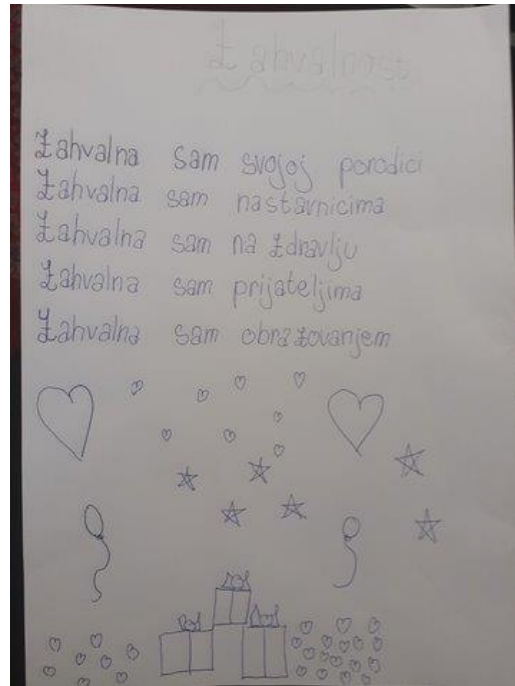 Zahvalnost
Zahvalna sam svojoj porodici
Zahvalna sam nastavnicima
Zahvalna sam na zdravlju
Zahvalna sam prijateljima
Zahvalna sam obrazovanjem